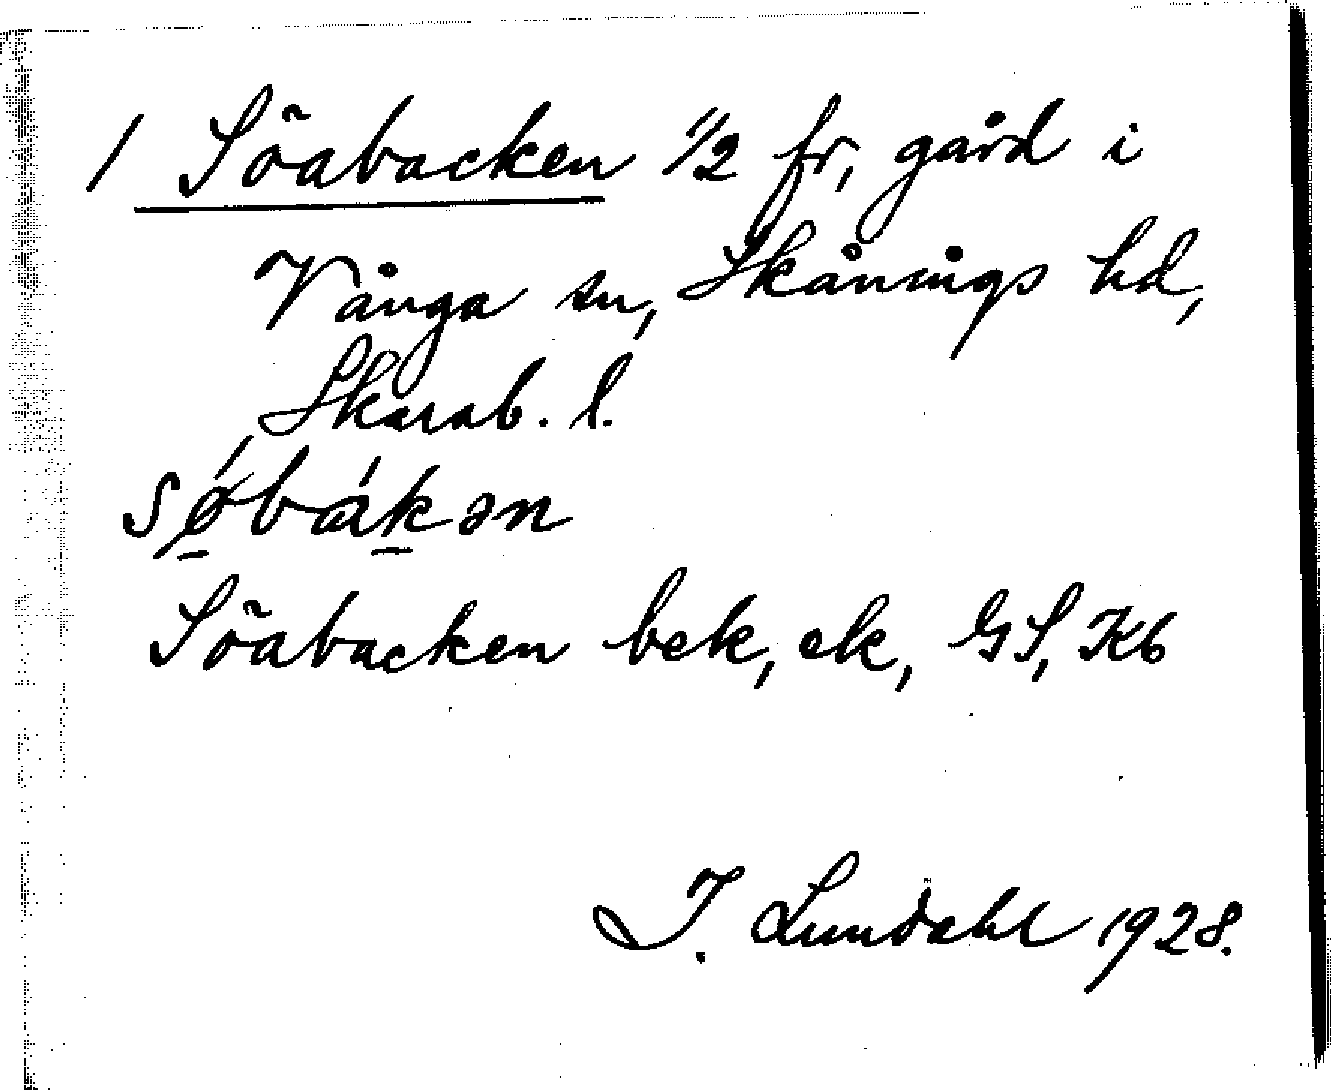 1 Söabacken 1/2 fr, gård i
Vånga sn, Skånings hd,
Skarab. l.
sǿ̱báḵən
Söabacken bek, ek, GS, Kb
I. Lundahl 1928.